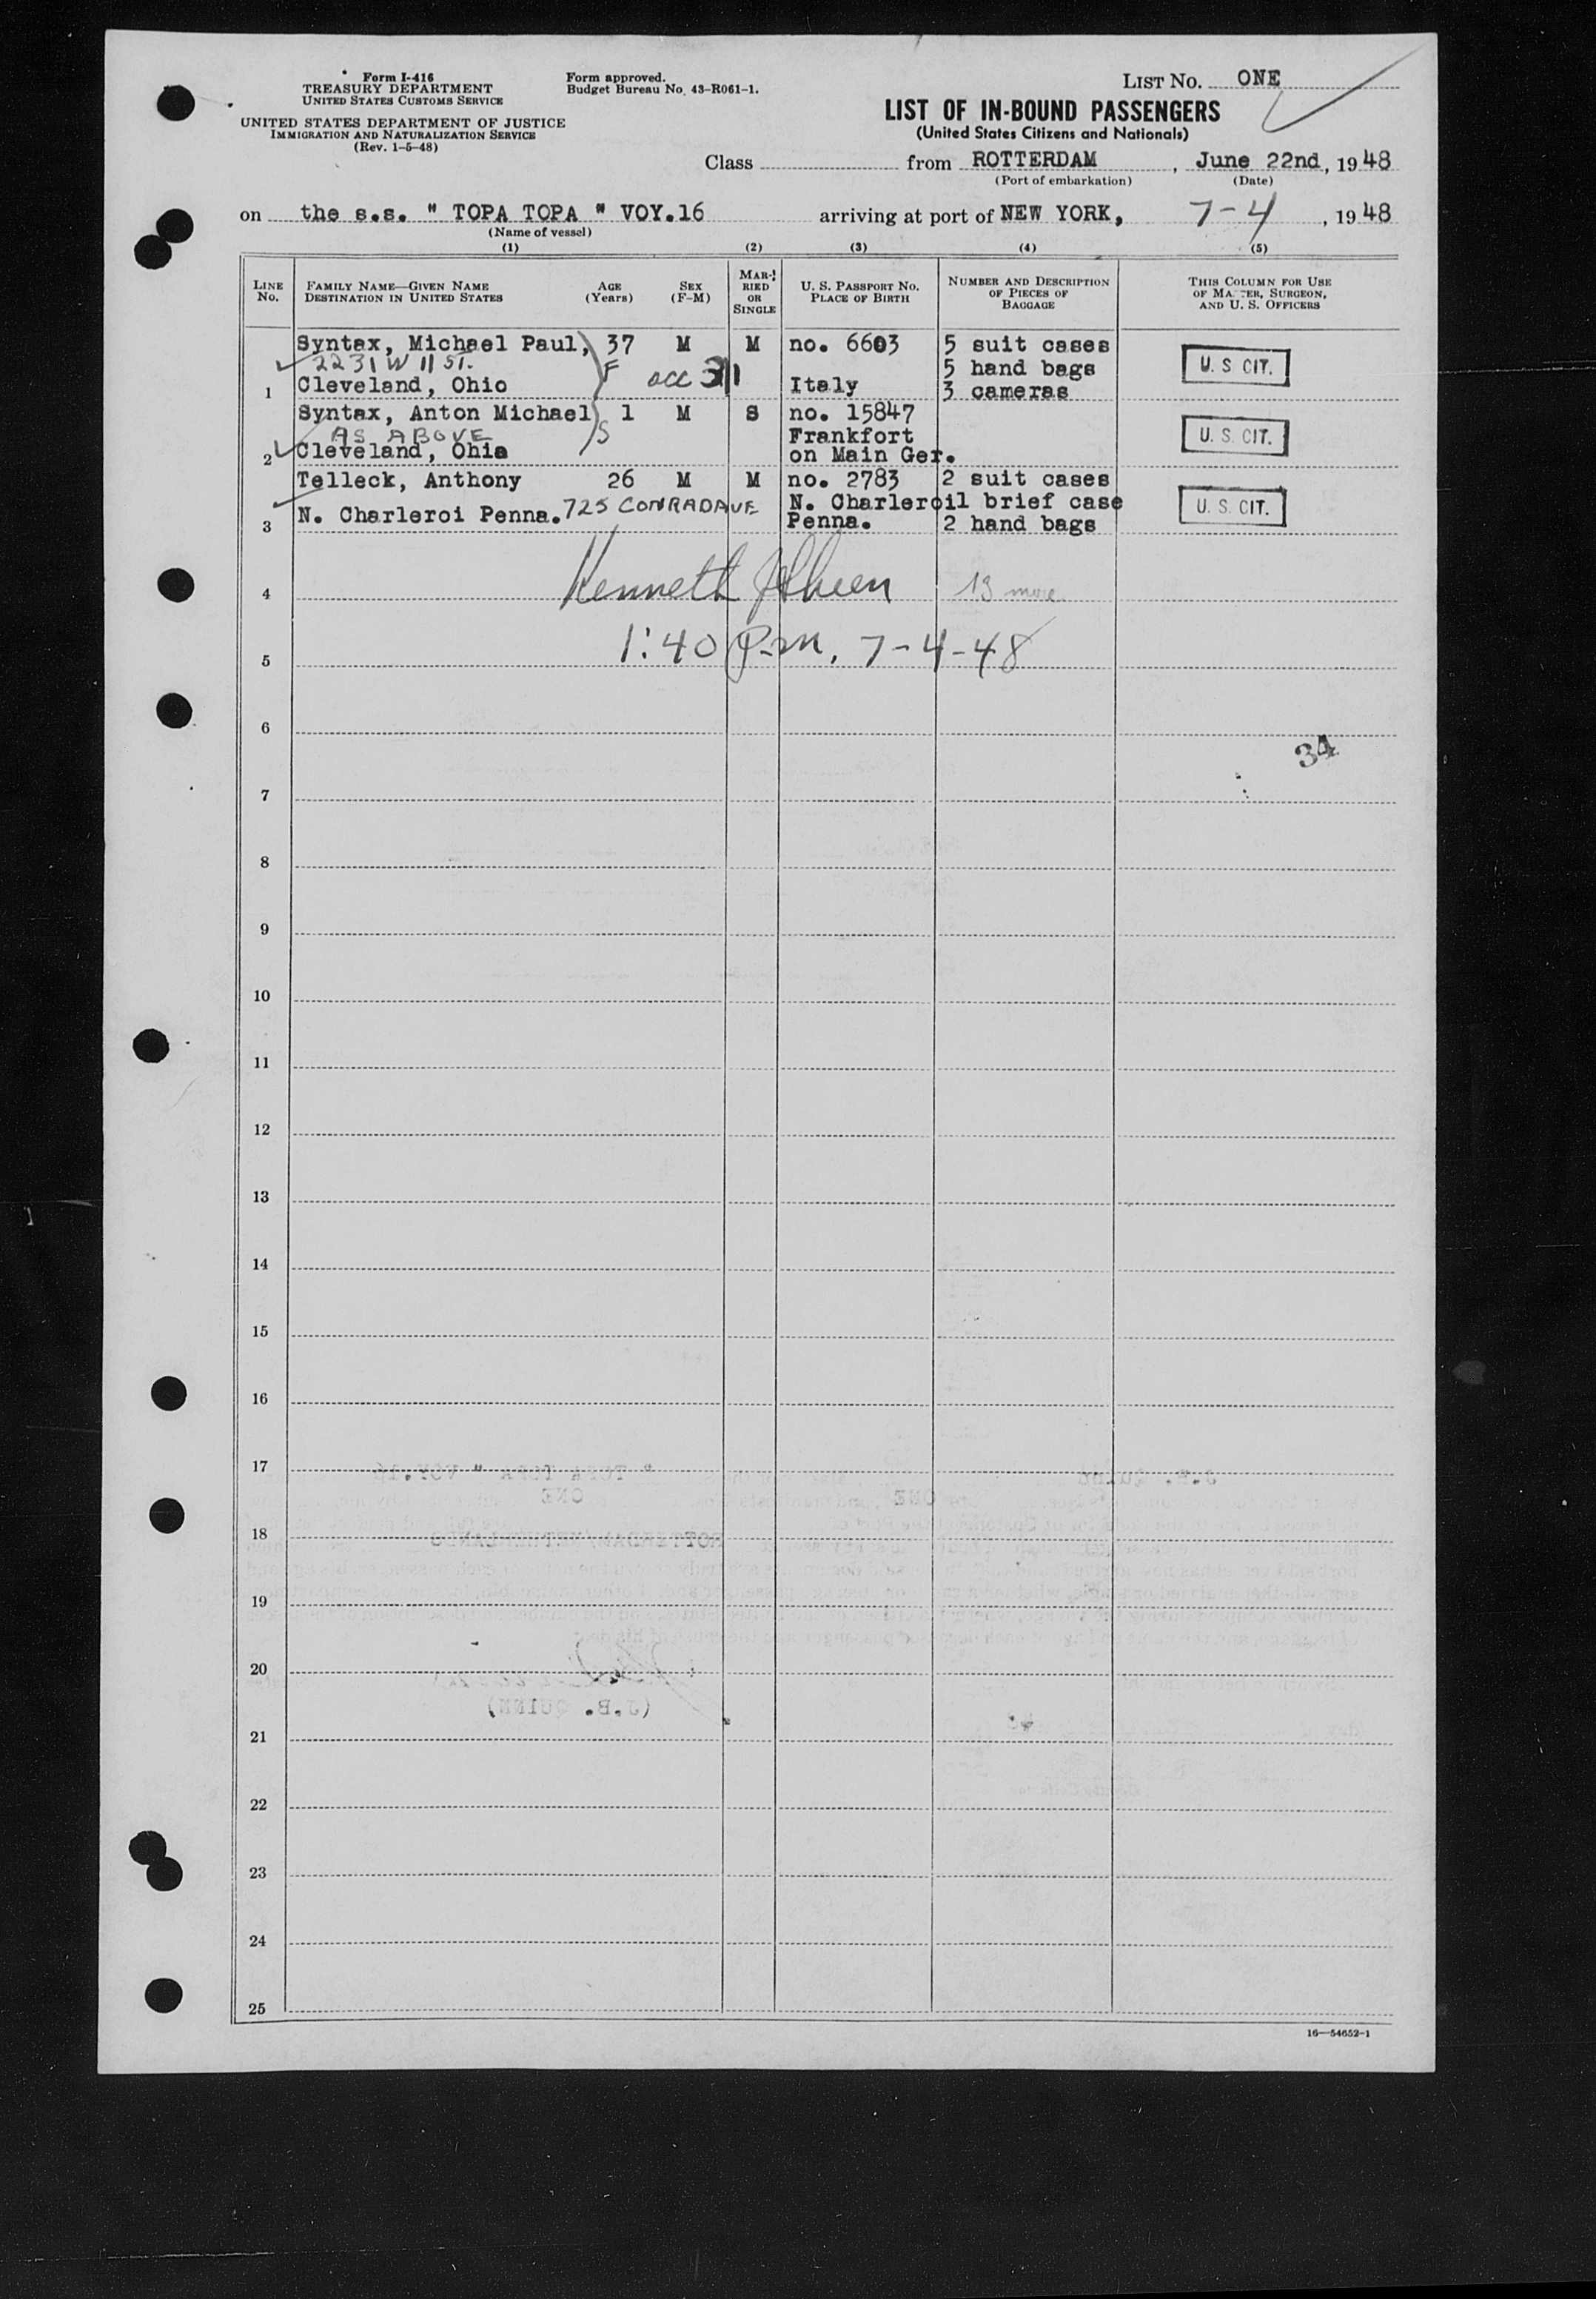 Form I-416
TREASURY DEPARTMENT
UNITED STATES CUSTOMS SERVICE
UNITED STATES DEPARTMENT OF JUSTICE
IMMIGRATION AND NATURALIZATION SERVICE
(Rev. 1-5-48)
Form approved.
Budget Bureau No. 43-R061-1.
LIST NO. ONE
LIST OF IN-BOUND PASSENGERS
(United States Citizens and Nationals)
Class from ROTTERDAM, June 22nd, 1948
(Port of embarkation) (Date)
on the s.s. " TOPA TOPA " VOY.16 arriving at port of NEW YORK, 7-4, 1948
(Name of vessel)
(1) (2) (3) (4) (5)
LINE No.
FAMILY NAME—GIVEN NAME
DESTINATION IN UNITED STATES
AGE (Years)
SEX (F-M)
MARRIED OR SINGLE
U. S. PASSPORT NO.
PLACE OF BIRTH
NUMBER AND DESCRIPTION OF PIECES OF BAGGAGE
THIS COLUMN FOR USE OF MASTER, SURGEON, AND U. S. OFFICERS
Syntax, Michael Paul, 37 M M no. 6603 5 suit cases
2231 W 11 ST. F 5 hand bags U. S CIT.
1 Cleveland, Ohio Italy 3 cameras
Syntax, Anton Michael 1 M S no. 15847
AS ABOVE S Frankfort U. S. CIT.
2 Cleveland, Ohio on Main Ger.
Telleck, Anthony 26 M M no. 2783 2 suit cases
N. Charleroi Penna. 725 CONRAD AVE N. Charleroi 1 brief case U. S. CIT.
3 Penna. 2 hand bags
4 Kenneth 13 more
5 1:40 P.m. 7-4-48
6
34
7
8
9
10
11
12
13
14
15
16
17
18
19
20
(J.B. QUINN)
21
22
23
24
25
16—54652-1